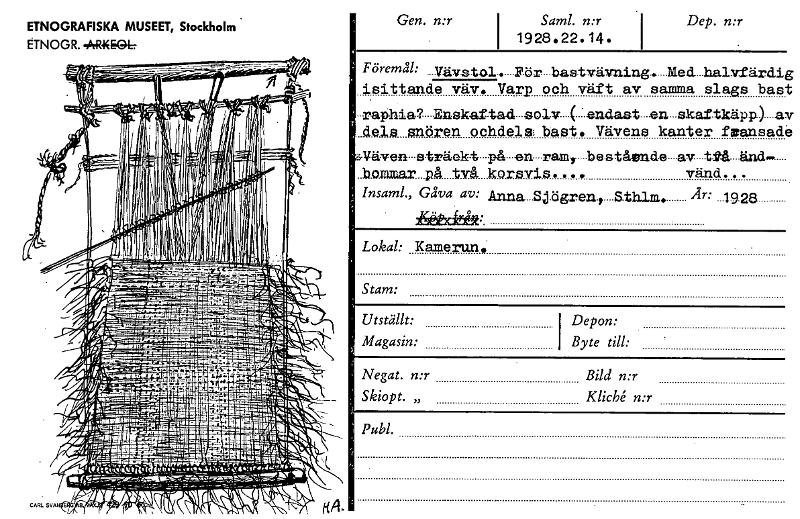 ETNOGRAFISKA MUSEET, Stockholm
ETNOGR. ARKEOL.
Gen. n:r Saml. n:r Dep. n:r
1928.22.14.
Föremål: Vävstol. För bastvävning. Med halvfärdig
isittande väv. Varp och väft av samma slags bast
raphia? Enskaftad solv ( endast en skaftkäpp) av
dels snören ochdels bast. Vävens kanter fransade
Väven sträckt på en ram, bestående av två änd-
bommar på två korsvis.... vänd...
Insaml., Gåva av: Anna Sjögren, Sthlm. År: 1928
Köp från:
Lokal: Kamerun.
Stam:
Utställt: Depon:
Magasin: Byte till:
Negat. n:r Bild n:r
Skiopt. „ Kliché n:r
Publ.
H.A.